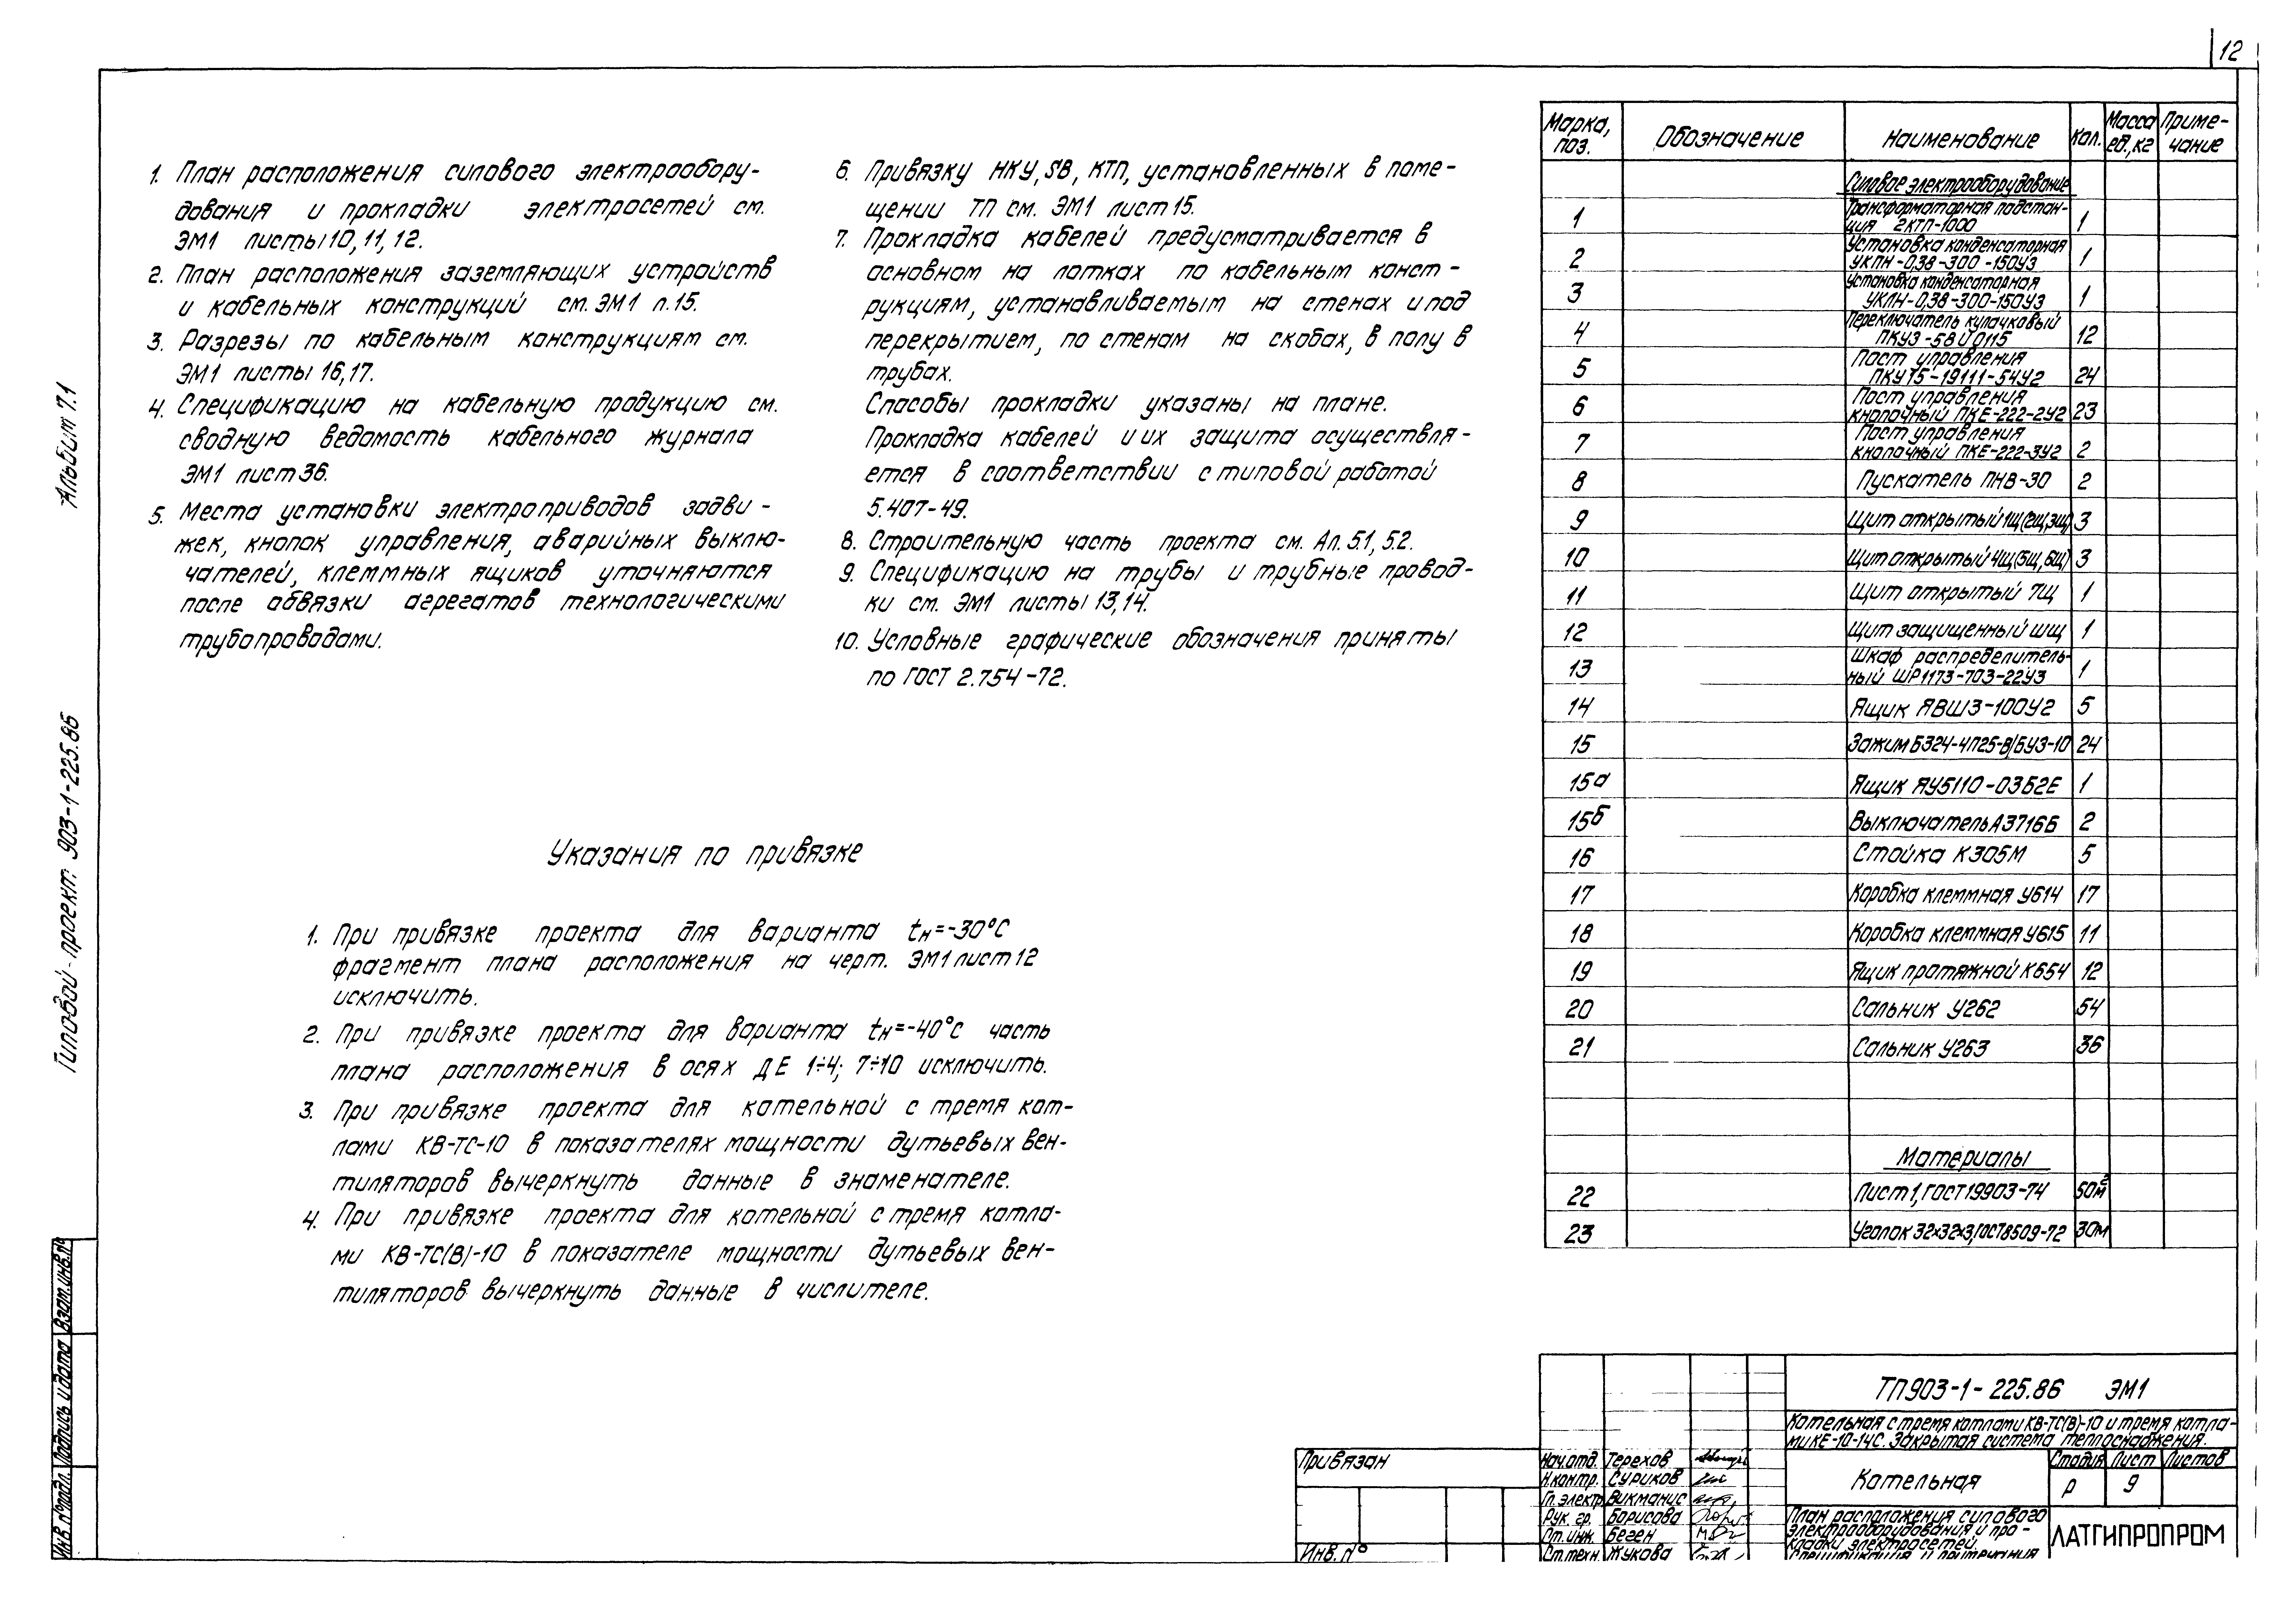 12
1. План расположения силового электрообору-
дования и прокладки электросетей см.
ЭМ1 листы 10, 11, 12.
2. План расположения заземляющих устройств
и кабельных конструкций см. ЭМ1 л. 15.
3. Разрезы по кабельным конструкциям см.
ЭМ1 листы 16, 17.
4. Спецификацию на кабельную продукцию см.
сводную ведомость кабельного журнала
ЭМ1 лист 36.
5. Места установки электроприводов задви-
жек, кнопок управления, аварийных выклю-
чателей, клеммных ящиков уточняются
после обвязки агрегатов технологическими
трубопроводами.
6. Привязку НКУ, ЯВ, КТП, установленных в поме-
щении ТП см. ЭМ1 лист 15.
7. Прокладка кабелей предусматривается в
основном на лотках по кабельным конст-
рукциям, устанавливаемым на стенах и под
перекрытием, по стенам на скобах, в полу в
трубах.
Способы прокладки указаны на плане.
Прокладка кабелей и их защита осуществля-
ется в соответствии с типовой работой
5.407-49.
8. Строительную часть проекта см. Ал. 5.1, 5.2.
9. Спецификацию на трубы и трубные провод-
ки см. ЭМ1 листы 13, 14.
10. Условные графические обозначения приняты
по ГОСТ 2.754-72.
Указания по привязке
1. При привязке проекта для варианта tн=-30°С
фрагмент плана расположения на черт. ЭМ1 лист 12
исключить.
2. При привязке проекта для варианта tн=-40°С часть
плана расположения в осях Д Е 1÷4; 7÷10 исключить.
3. При привязке проекта для котельной с тремя кот-
лами КВ-ТС-10 в показателях мощности дутьевых вен-
тиляторов вычеркнуть данные в знаменателе.
4. При привязке проекта для котельной с тремя котла-
ми КВ-ТС(В)-10 в показателе мощности дутьевых вен-
тиляторов вычеркнуть данные в числителе.
Марка, поз. Обозначение Наименование Кол. Масса ед, кг Приме-чание
Силовое электрооборудование
1 Трансформаторная подстан-
ция 2КТП-1000 1
2 Установка конденсаторная
УКЛН-0,38-300-150У3 1
3 Установка конденсаторная
УКЛН-0,38-300-150У3 1
4 Переключатель кулачковый
ПКУ3-58И0115 12
5 Пост управления
ПКУ15-19111-54У2 24
6 Пост управления
кнопочный ПКЕ-222-2У2 23
7 Пост управления
кнопочный ПКЕ-222-3У2 2
8 Пускатель ПНВ-30 2
9 Щит открытый 1Щ(2Щ,3Щ) 3
10 Щит открытый 4Щ(5Щ,6Щ) 3
11 Щит открытый 7Щ 1
12 Щит защищенный ШЩ 1
13 Шкаф распределитель-
ный ШР1173-703-22У3 1
14 Ящик ЯВШ3-100У2 5
15 Зажим БЗ24-4П25-В/БУ3-10 24
15а Ящик ЯУ5110-03Б2Е 1
15б Выключатель А3716Б 2
16 Стойка К305М 5
17 Коробка клеммная У614 17
18 Коробка клеммная У615 11
19 Ящик протяжной К654 12
20 Сальник У262 54
21 Сальник У263 36
Материалы
22 Лист 1, ГОСТ 19903-74 50м²
23 Уголок 32×32×3, ГОСТ 8509-72 30м
ТП 903-1-225.86 ЭМ1
Котельная с тремя котлами КВ-ТС(В)-10 и тремя котла-
ми КЕ-10-14С. Закрытая система теплоснабжения.
Котельная
Стадия Лист Листов
Р 9
План расположения силового
электрооборудования и про-
кладки электросетей.
Спецификация и примечания
ЛАТГИПРОПРОМ
Нач.отд. Терехов
Н.контр. Суриков
Гл.электр. Викманис
Рук. гр. Борисова
Ст.инж. Беген
Ст.техн. Жукова
Привязан
Инв.№
Альбом 7.1
Типовой проект 903-1-225.86
Взам.инв.№
Подпись и дата
Инв.№подл.